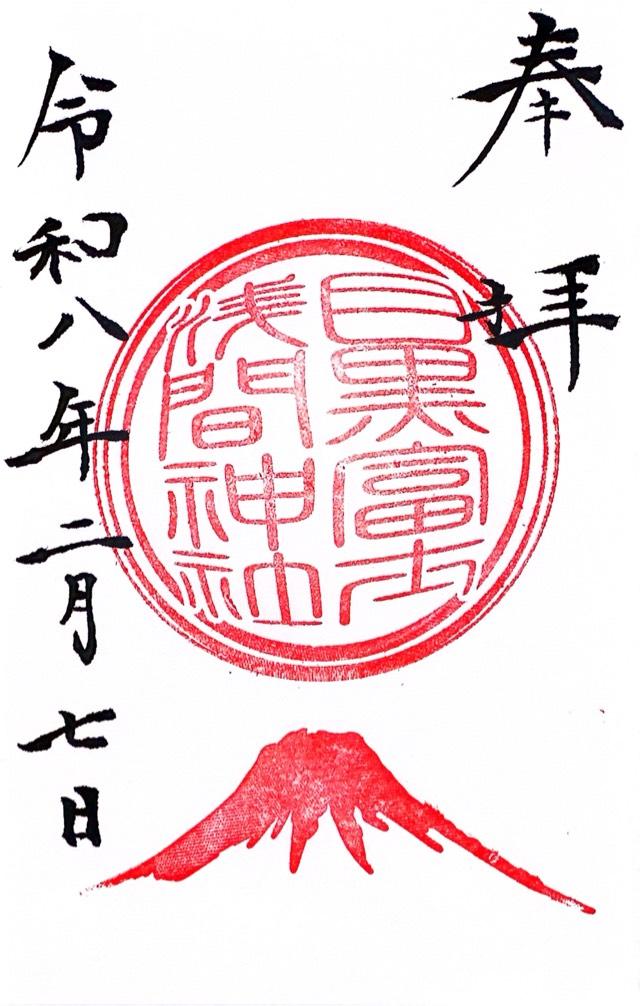 奉拝
目黒富士
浅間神社
令和八年二月七日